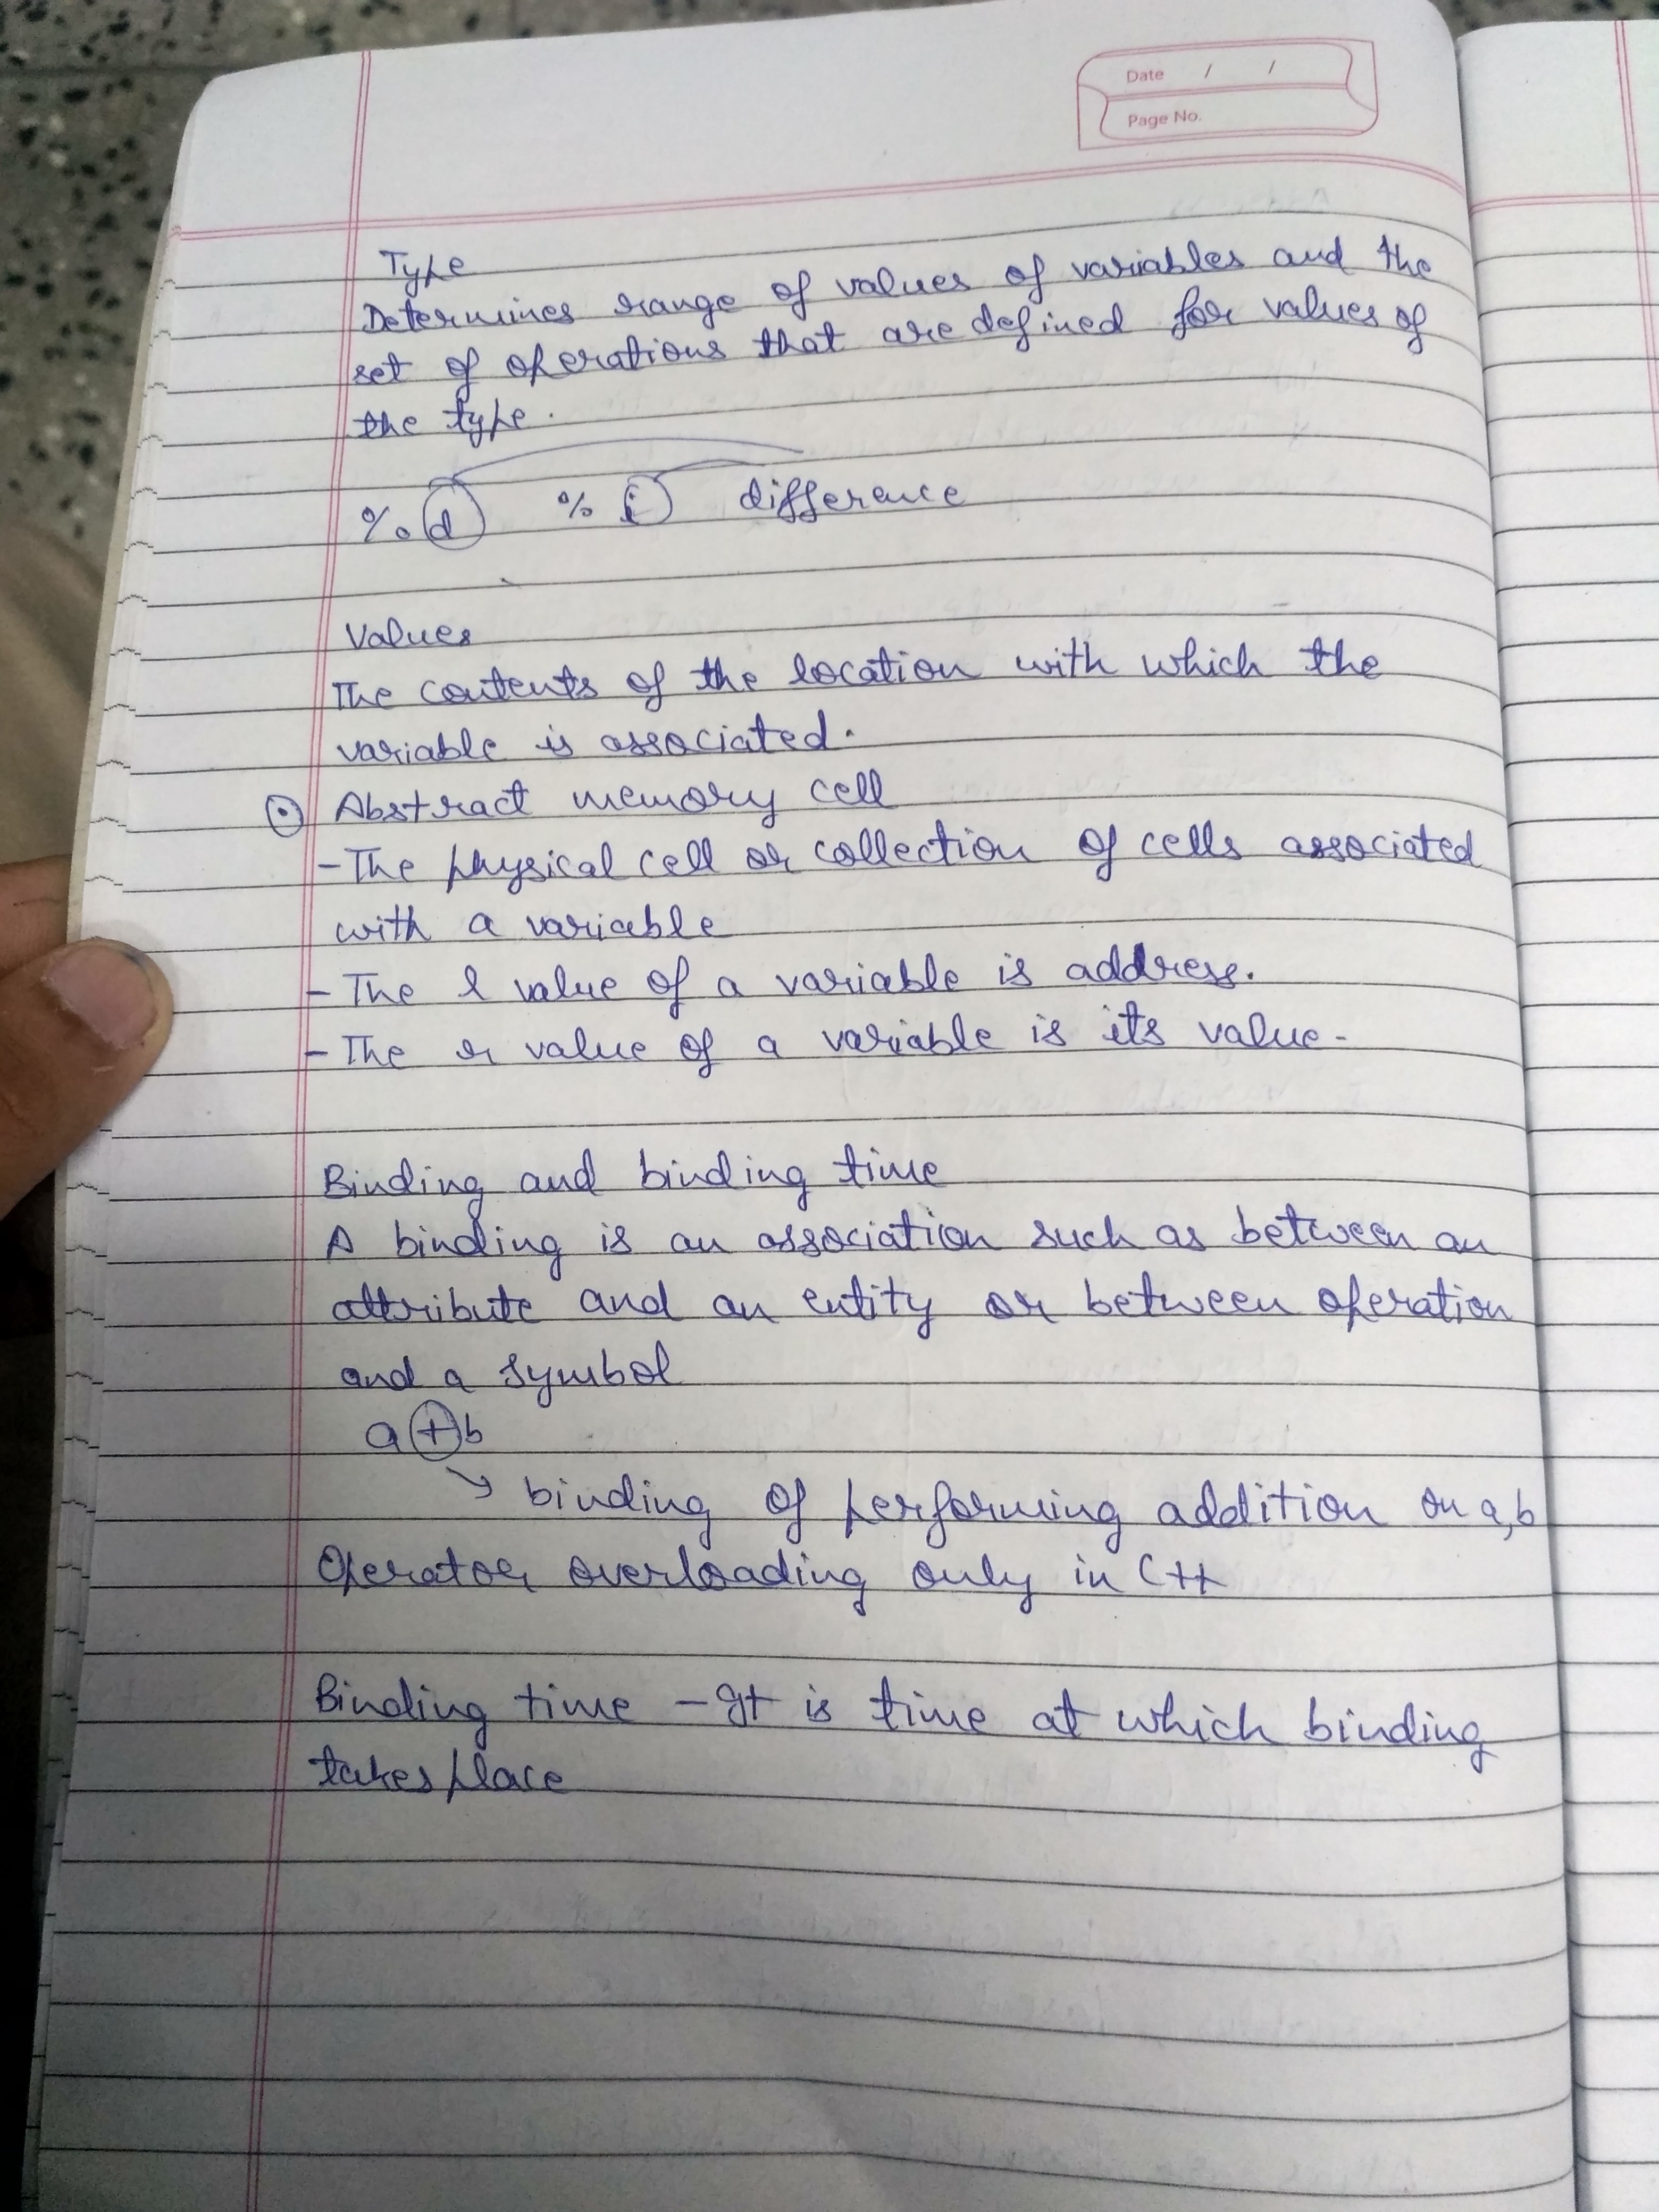 Date / /
Page No.
Type
Determines range of values of variables and the
set of operations that are defined for values of
the type.
%d %i difference
Values
The contents of the location with which the
variable is associated.
Abstract memory cell
- The physical cell or collection of cells associated
with a variable
- The l value of a variable is address.
- The r value of a variable is its value.
Binding and binding time
A binding is an association such as between an
attribute and an entity or between operation
and a symbol
a + b
→ binding of performing addition on a,b
Operator overloading only in C++
Binding time - It is time at which binding
takes place